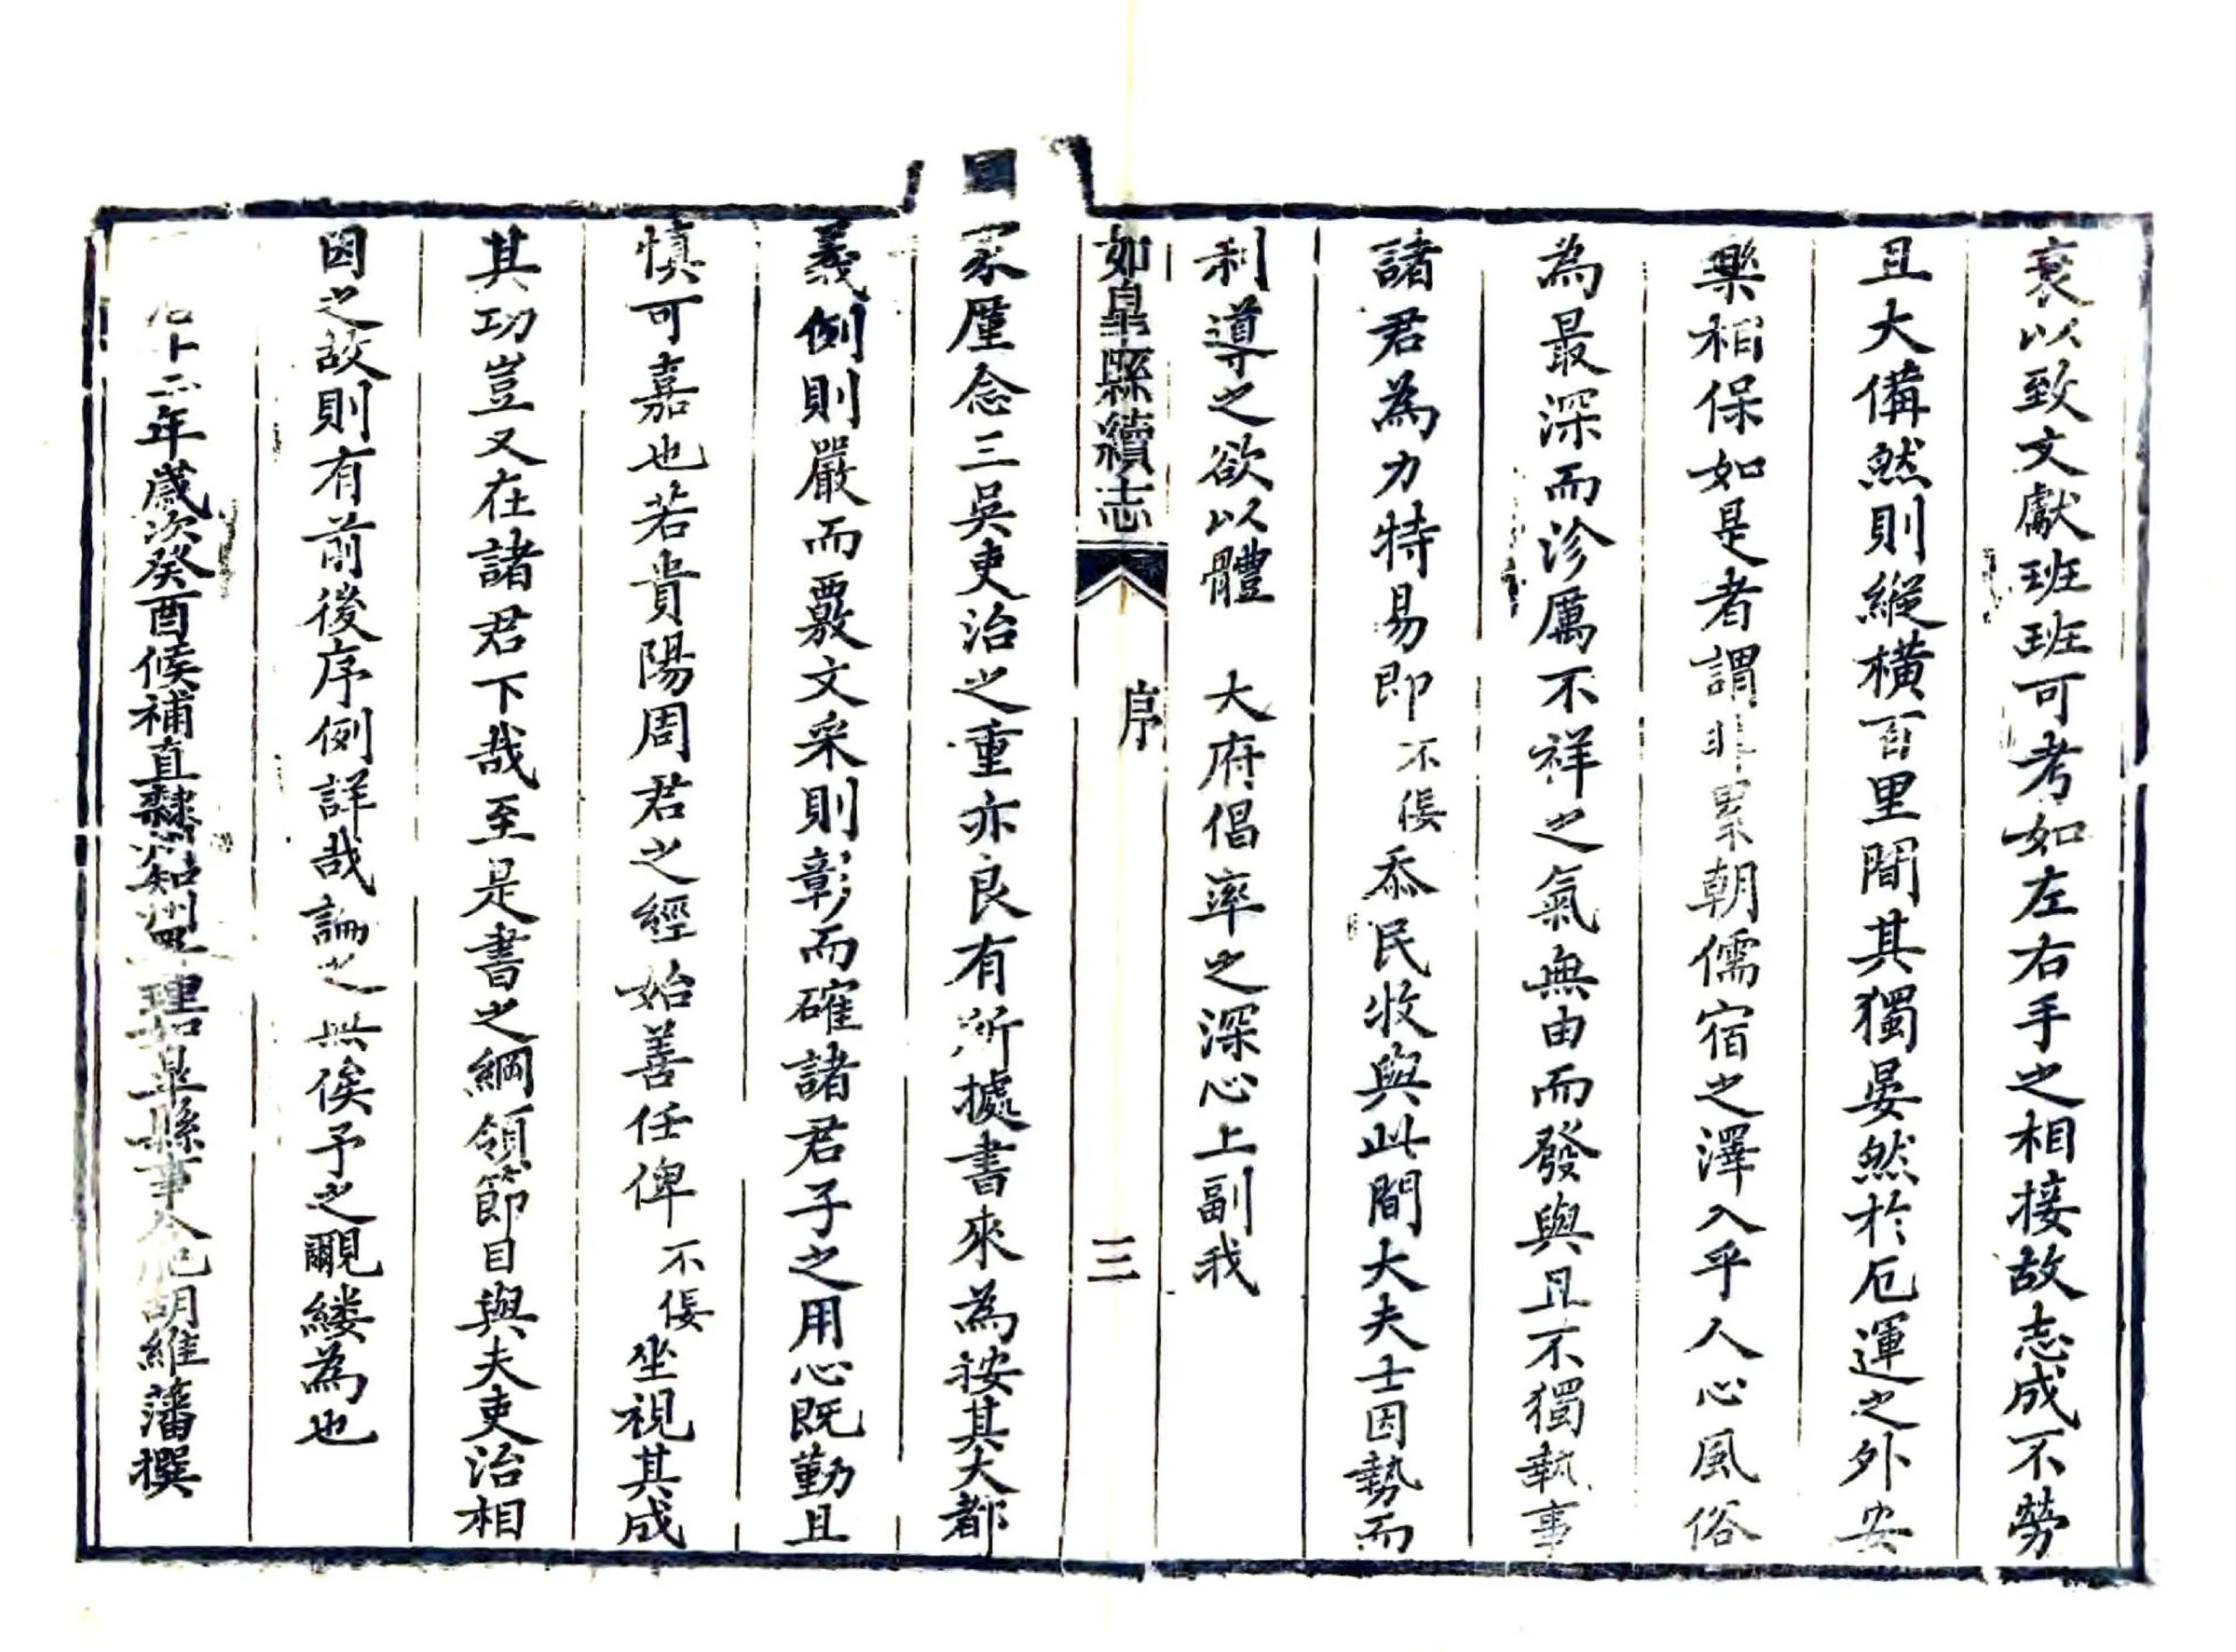 衰以致文獻班班可考如左右手之相接故志成不勞
且大備然則縱橫百里間其獨晏然於厄運之外安
樂相保如是者謂非累朝儒宿之澤入乎人心風俗
為最深而沴厲不祥之氣無由而發與且不獨執事
諸君為力特易即不佞忝民牧與此間大夫士因勢而
利導之欲以體 大府倡率之深心上副我
如皐縣續志 序 三
國
家廑念三吳吏治之重亦良有所據書來為按其大都
義例則嚴而覈文采則彰而確諸君子之用心既勤且
慎可嘉也若貴陽周君之經始善任俾不佞坐視其成
其功豈又在諸君下哉至是書之綱領節目與夫吏治相
因之故則有前後序例詳哉論之無俟予之覼縷為也
十二年歲次癸酉候補直隸州知州署理如皐縣事合肥胡維藩撰